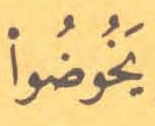 يَخُوضُوا